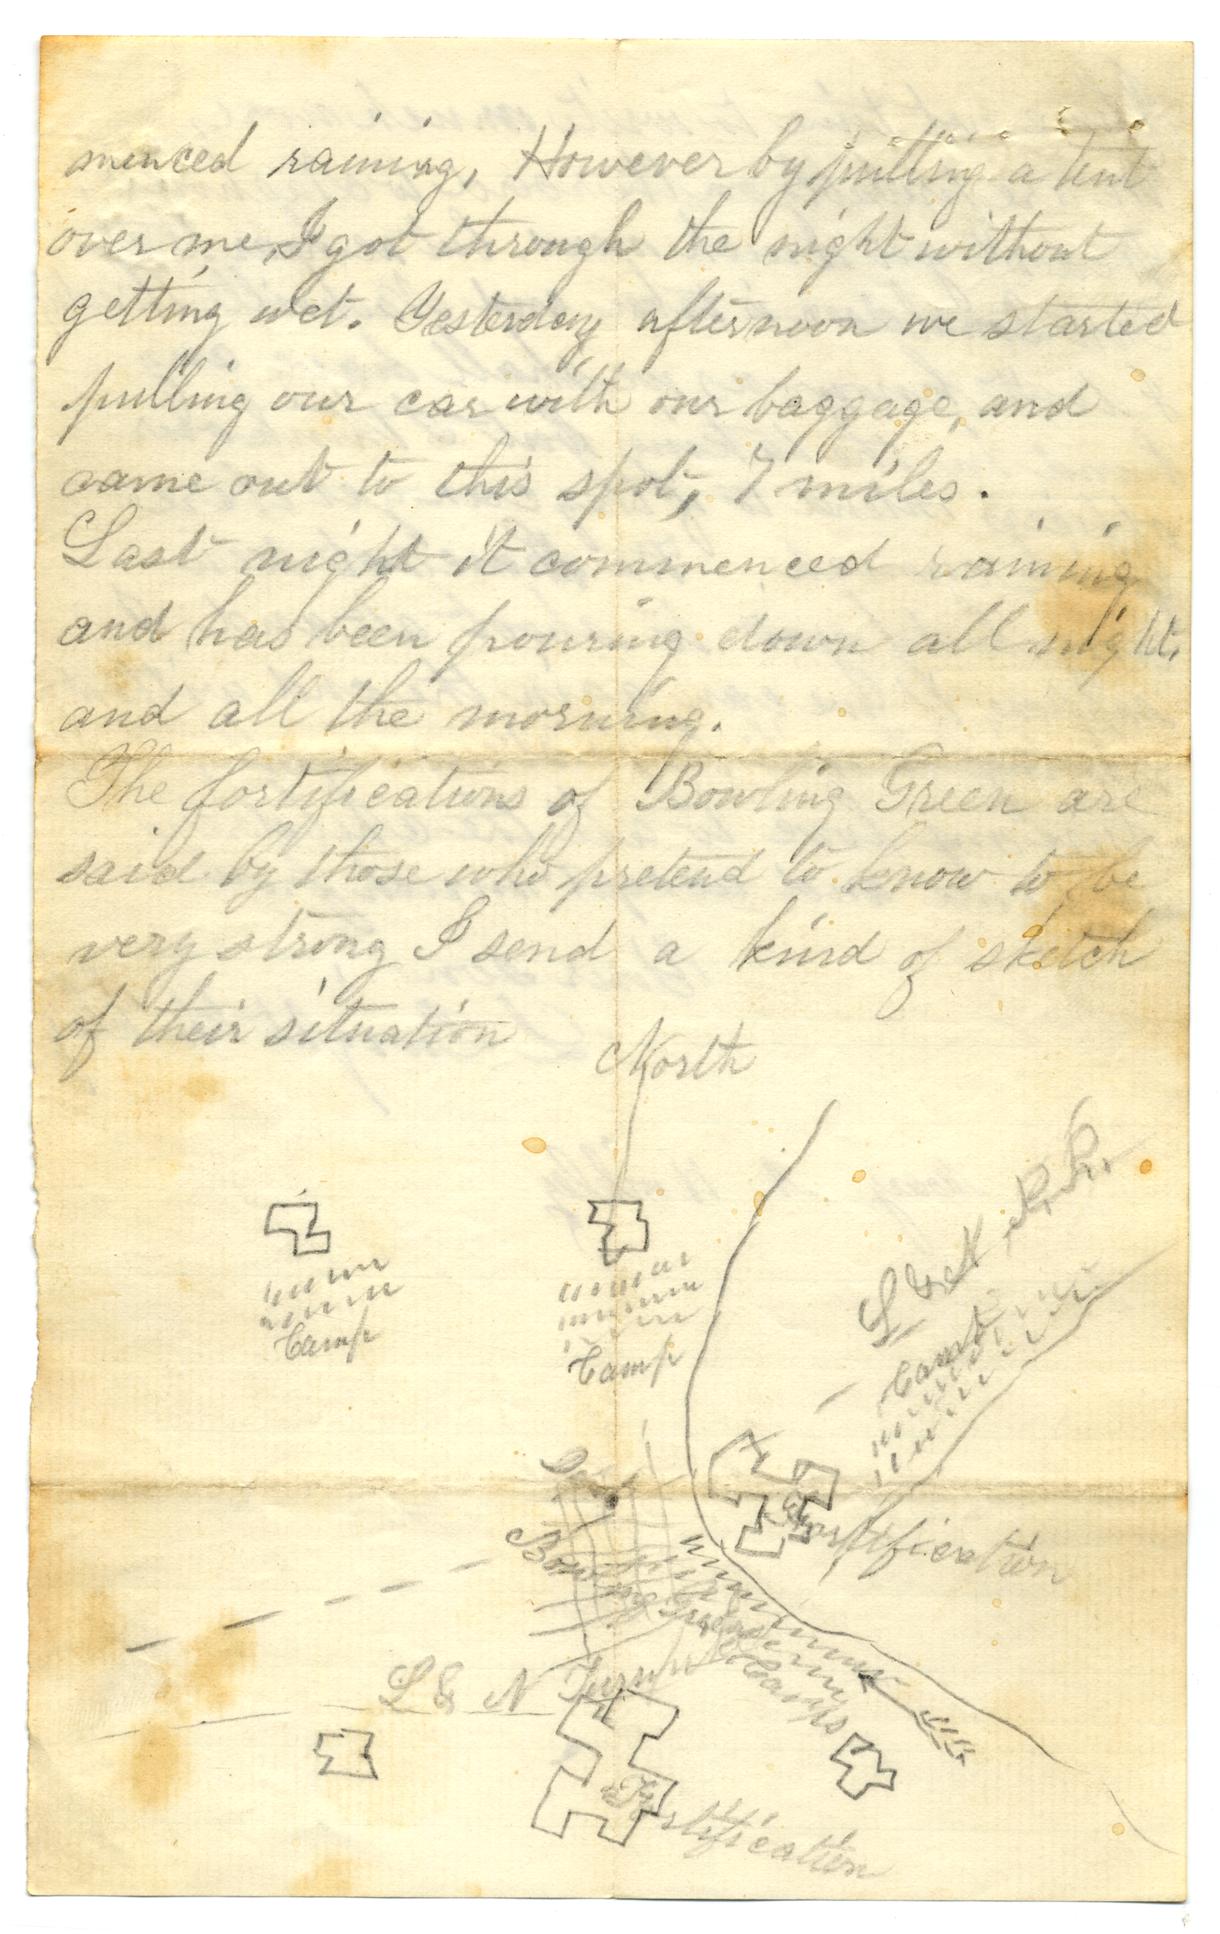 menced raining, However by pulling a tent
over me, I got through the night without
getting wet. Yesterday afternoon we started
pulling our car with our baggage, and
came out to this spot, 7 miles.
Last night it commenced raining
and has been pouring down all night,
and all the morning.
The fortifications of Bowling Green are
said by those who pretend to know to be
very strong I send a kind of sketch
of their situation
North
L & N R.R.
Camp
Camp
Camp
Fortification
Bowling Green
Camps
L & N Turn
Fortification